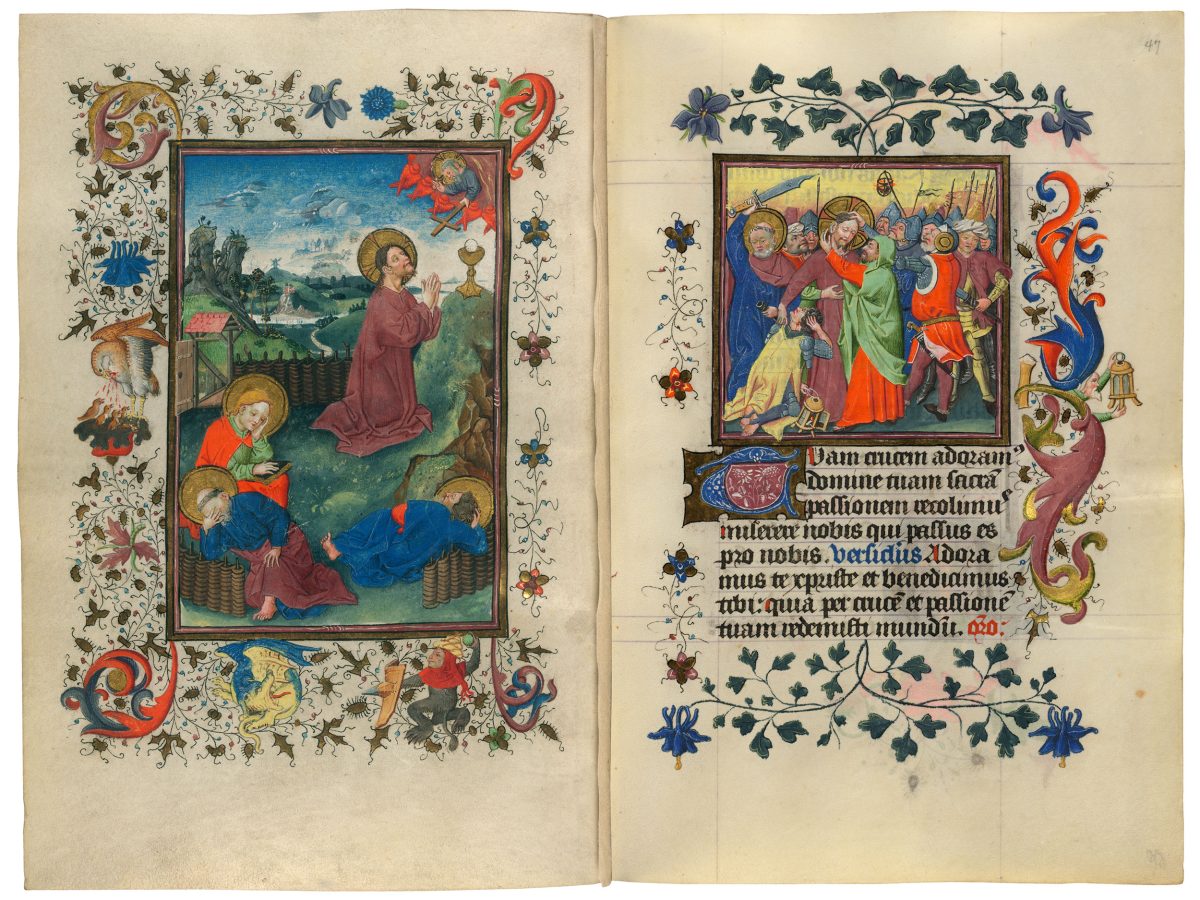 47
TUam crucem adoramꝰ
domine tuam sacrā
passionem recolimus
miserere nobis qui passus es
pro nobis. Versiclus Adora
mus te xpriste et benedicimus
tibi: quia per crucē et passionē
tuam redemisti mundū. oro: